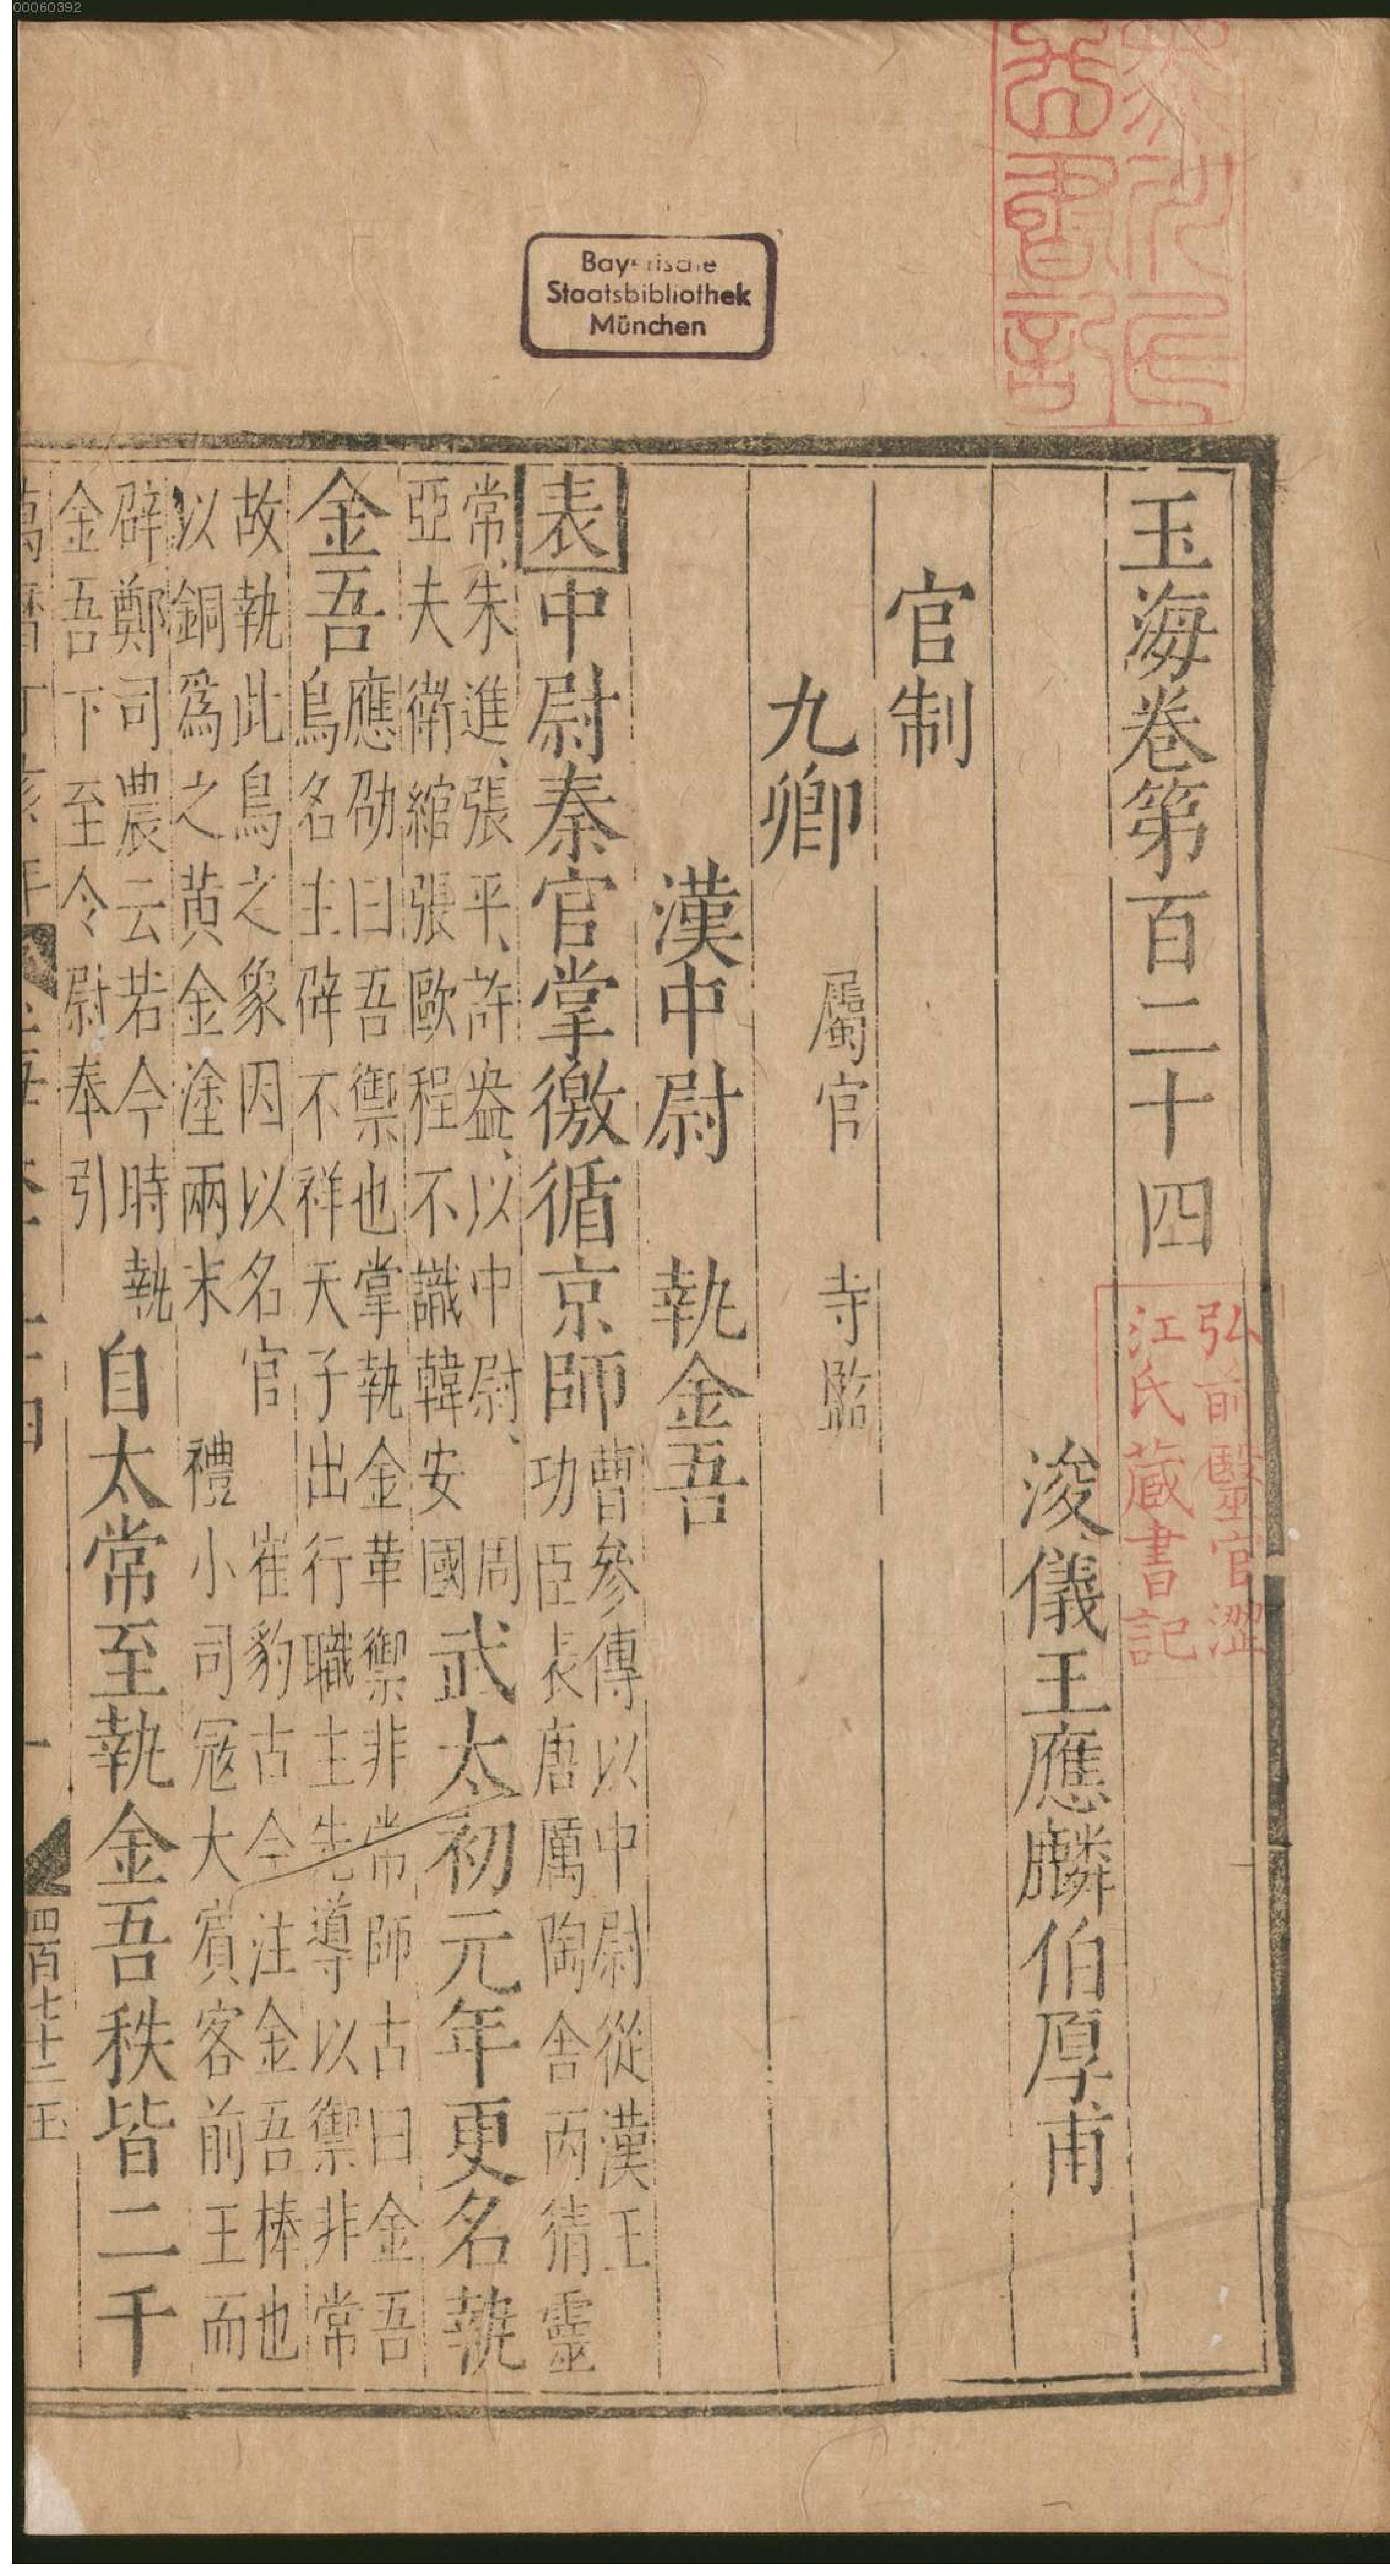 00060392
Bayerische
Staatsbibliothek
München
玉海卷第百二十四
弘前毉官澀
江氏蔵書記
浚儀王應麟伯厚甫
官制
九卿 屬官 寺監
漢中尉 執金吾
表中尉秦官掌徼循京師
曹參傳以中尉從漢王
功臣表唐厲陶舍丙猜靈
常、朱進、張平、許盎、以中尉、周
亞夫衛綰張歐程不識韓安國
武太初元年更名執
金吾
應劭曰吾禦也掌執金革禦非常師古曰金吾
鳥名主辟不祥天子出行職主先導以禦非常
故執此鳥之象因以名官 崔豹古今注金吾棒也
以銅爲之黄金塗兩末 禮小司寇大賓客前王而
辟鄭司農云若今時執
金吾下至令尉奉引
自太常至執金吾秩皆二千
一
四百七十二
玉